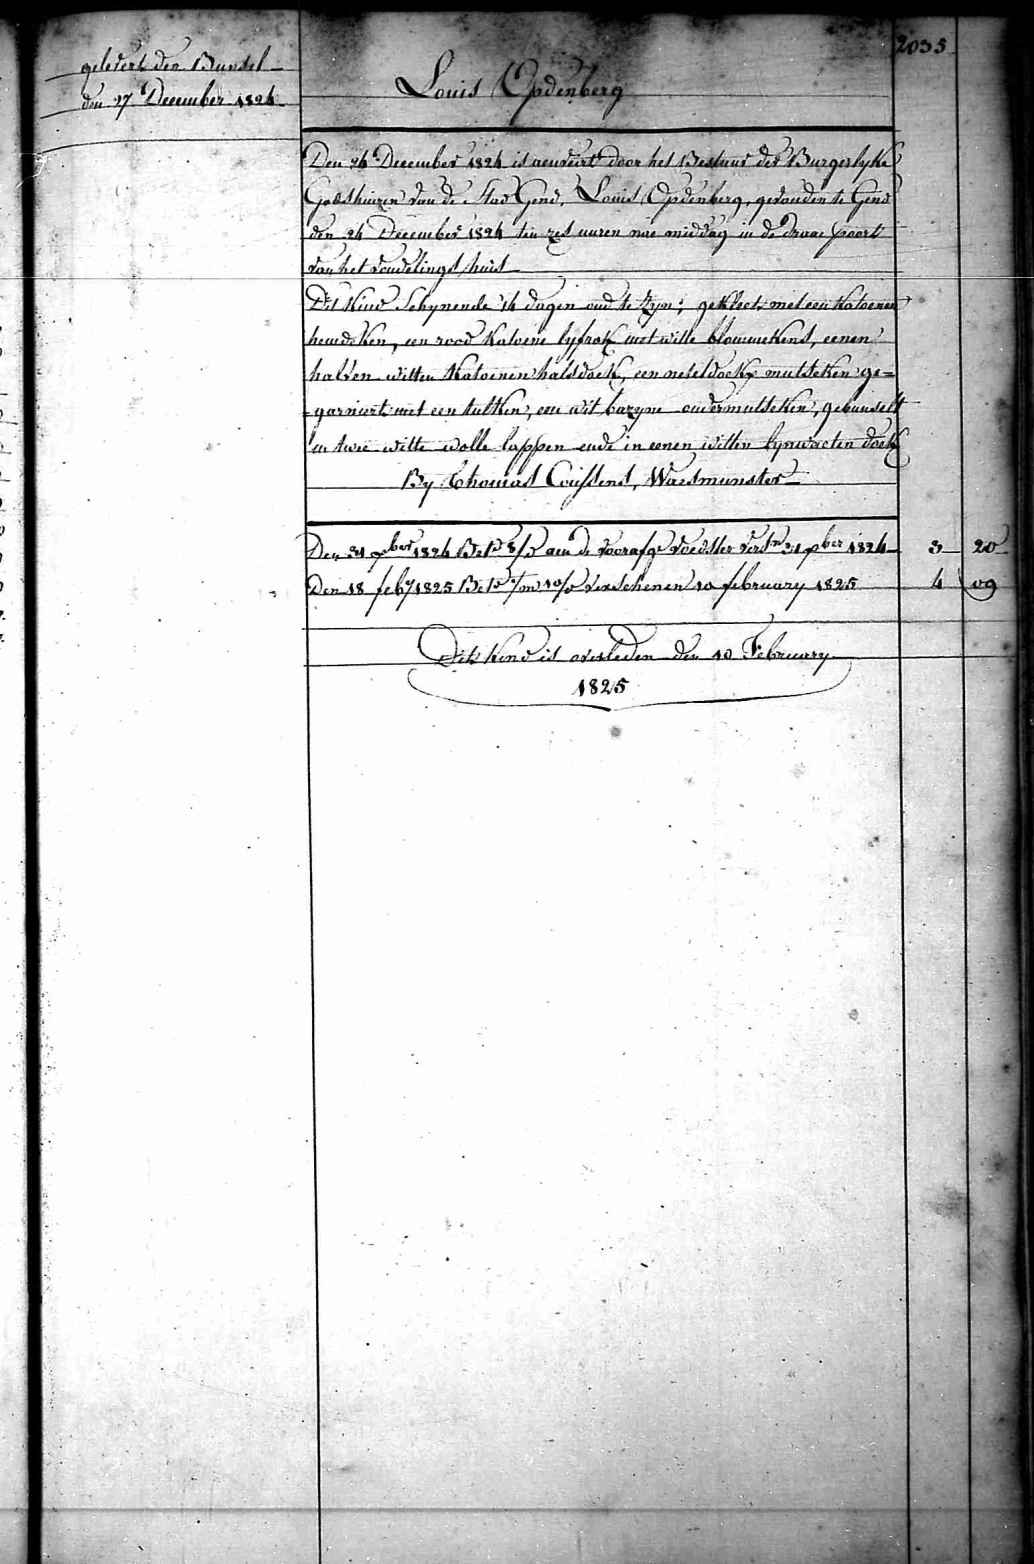 2035
gelevert den Bunsel
den 27 December 1824
Louis Opdenberg
Den 24 December 1824 is aenveirt door het Bestuur der Burgerlyke
Godshuizen van de Stad Gend, Louis Opdenberg, gevonden te Gend
den 24 December 1824 ten zes uuren nae middag in de Draae poort
van het vondelings huis
Dit kind Schynende 14 dagen oud te zyn; gekleet met een katoenen
hemdeken, een rood katoene lyfrok met witte blommekens, eenen
halven witten katoenen halsdoek, een neteldoekx mutseken ge=
=garniert met een tulken, een wit bazyne ondermutseken, gebunselt
in twee witte wolle lappen ende in eenen witten lynwaeten doek
By Thomas Cuissens, Waesmunster
Den 31 xber 1824 Bet. aen de voorafge voedster versn 31 xber 1824 3 20
Den 18 feby 1825 Bet. verschenen 10 february 1825 4 09
Dit kind is overleden den 10 February
1825